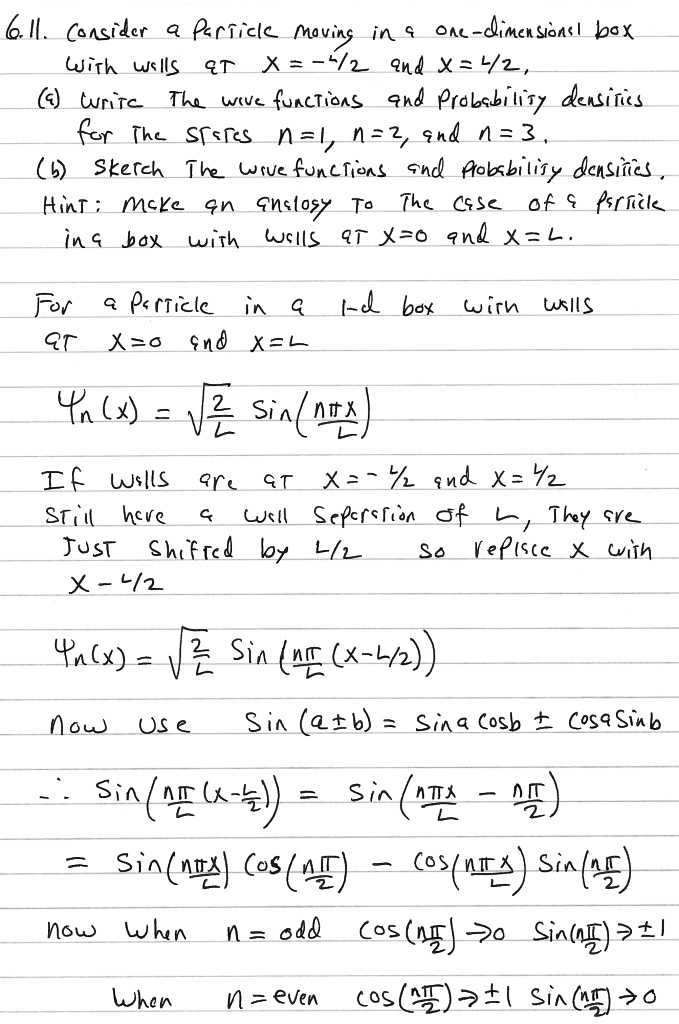 6.11. Consider a particle moving in a one-dimensional box
with walls at x = -L/2 and x = L/2,
(a) write The wave functions and Probability densities
for The states n=1, n=2, and n=3.
(b) Sketch The wave functions and probability densities.
Hint: make an analogy To The case of a particle
in a box with walls at x=0 and x=L.
For a particle in a 1-d box with walls
at x=0 and x=L
Ψn(x) = √(2/L) Sin(nπx/L)
If walls are at x = -L/2 and x = L/2
Still have a wall Separation of L, They are
Just Shifted by L/2 so replace x with
x - L/2
Ψn(x) = √(2/L) Sin(nπ/L (x-L/2))
now use Sin(a±b) = Sin a Cos b ± Cos a Sin b
∴ Sin(nπ/L (x-L/2)) = Sin(nπx/L - nπ/2)
= Sin(nπx/L) Cos(nπ/2) - Cos(nπx/L) Sin(nπ/2)
now when n = odd Cos(nπ/2) → 0 Sin(nπ/2) → ±1
when n = even Cos(nπ/2) → ±1 Sin(nπ/2) → 0